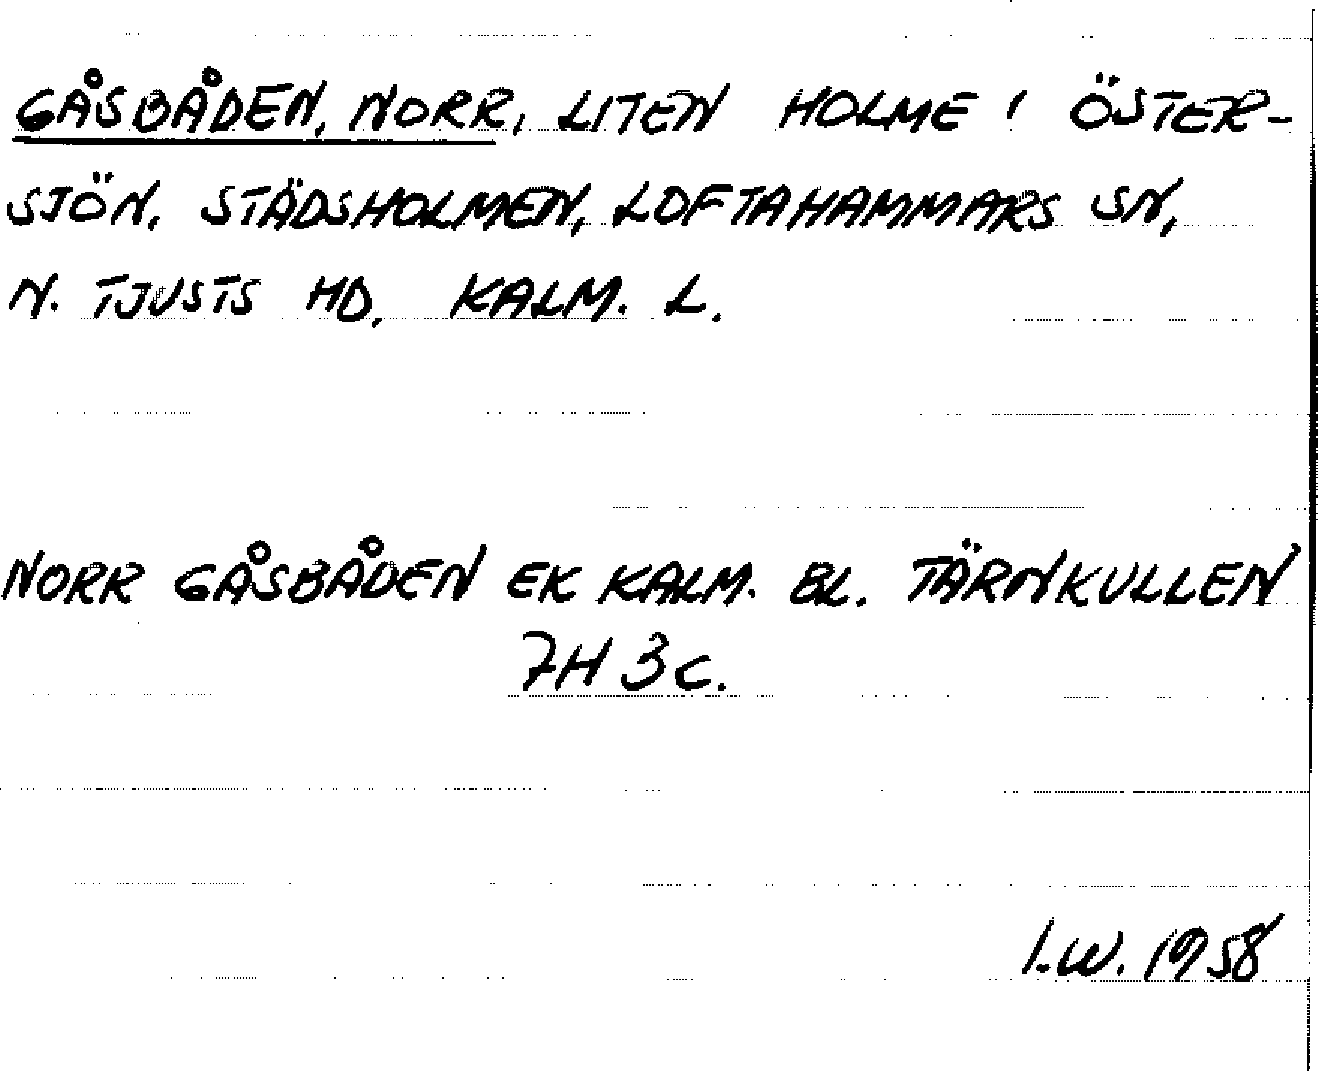 GÅSBÅDEN, NORR, LITEN HOLME I ÖSTER-
SJÖN. STÄDSHOLMEN, LOFTAHAMMARS SN,
N. TJUSTS HD, KALM. L.
NORR GÅSBÅDEN EK KALM. BL. TÄRNKULLEN
7H 3c.
I.W. 1958